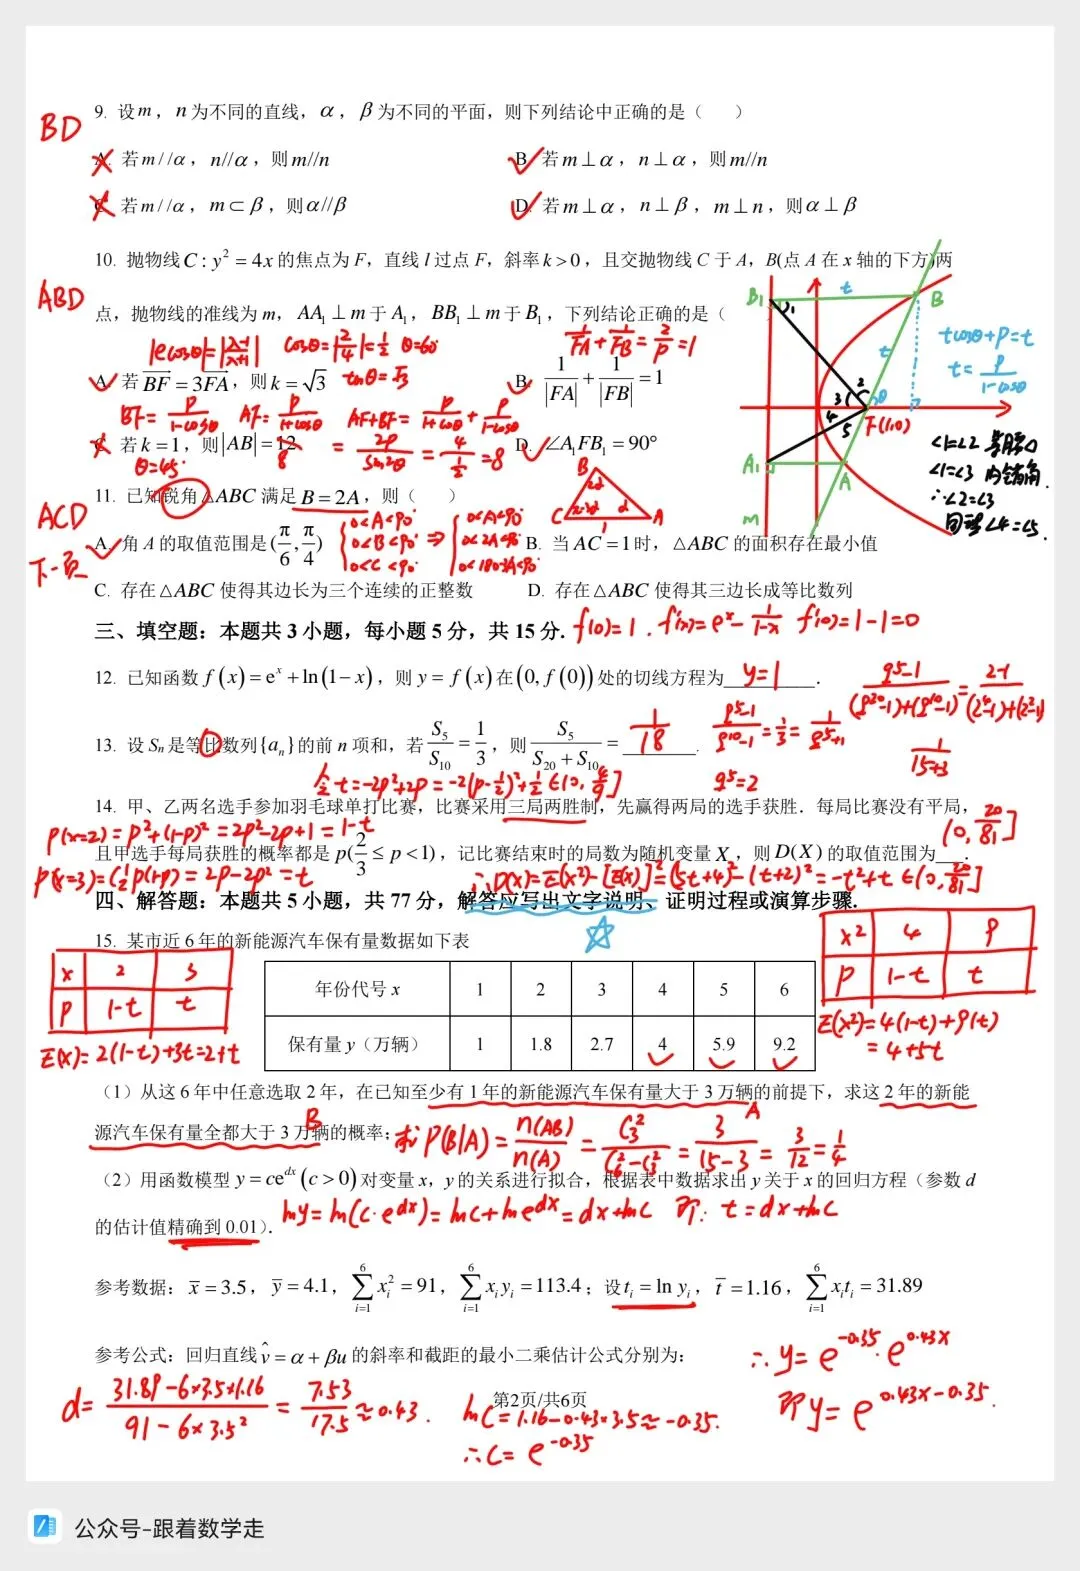 BD
9. 设m，n为不同的直线，α，β为不同的平面，则下列结论中正确的是（　　）
A. 若m//α，n//α，则m//n
B. 若m⊥α，n⊥α，则m//n
C. 若m//α，m⊂β，则α//β
D. 若m⊥α，n⊥β，m⊥n，则α⊥β
ABD
10. 抛物线C : y² = 4x的焦点为F，直线l过点F，斜率k > 0，且交抛物线C于A，B(点A在x轴的下方)两
点，抛物线的准线为m，AA₁⊥m于A₁，BB₁⊥m于B₁，下列结论正确的是（
|ecosθ|=|λ-1/λ+1| cosθ=|2/4|=1/2 θ=60°
1/FA+1/FB=2/p=1
A. 若BF = 3FA，则k = √3
tanθ=√3
B. 1/|FA| + 1/|FB| = 1
BF=p/1-cosθ AF=p/1+cosθ AF+BF=p/1+cosθ+p/1-cosθ
C. 若k = 1，则|AB| = 12
8
=2p/sin²θ=4/½=8
D. ∠A₁FB₁ = 90°
θ=45°
B₁ t B
tcosθ+p=t
t=p/1-cosθ
F(1,0)
A₁ A
m
∠1=∠2 等腰
∠1=∠3 内错角.
∴∠2=∠3
同理∠4=∠5.
ACD
下一页
11. 已知锐角△ABC满足B = 2A，则（　　）
A. 角A的取值范围是(π/6, π/4)
0<A<90°
0<B<90°
0<C<90°
⇒
0<A<90°
0<2A<90°
0<180-3A<90°
B. 当AC = 1时，△ABC的面积存在最小值
C. 存在△ABC使得其边长为三个连续的正整数
D. 存在△ABC使得其三边长成等比数列
三、填空题：本题共 3 小题，每小题 5 分，共 15 分.
f(0)=1. f'(x)=eˣ-1/1-x f'(0)=1-1=0
12. 已知函数f(x) = eˣ + ln(1−x)，则y = f(x)在(0, f(0))处的切线方程为 y=1 .
13. 设Sₙ是等比数列{aₙ}的前n项和，若S₅/S₁₀ = 1/3，则S₅/(S₂₀ + S₁₀) = 1/18 .
q⁵-1/q¹⁰-1=1/3=1/q⁵+1
q⁵=2
q⁵-1/(q²⁰-1)+(q¹⁰-1)=2-1/(2⁴-1)+(2²-1)
1/15+3
令t=-2p²+2p=-2(p-½)²+½∈(0,4/9]
14. 甲、乙两名选手参加羽毛球单打比赛，比赛采用三局两胜制，先赢得两局的选手获胜．每局比赛没有平局，
P(x=2)=p²+(1-p)²=2p²-2p+1=1-t
且甲选手每局获胜的概率都是p(2/3 ≤ p < 1)，记比赛结束时的局数为随机变量X，则D(X)的取值范围为 (0,20/81] .
P(x=3)=C½p(1-p)=2p-2p²=t
∴D(x)=E(x²)-[E(x)]²=(5t+4)-(t+2)²=-t²+t∈(0,20/81]
四、解答题：本题共 5 小题，共 77 分，解答应写出文字说明、证明过程或演算步骤.
15. 某市近 6 年的新能源汽车保有量数据如下表
x 2 3
P 1-t t
E(x)=2(1-t)+3t=2+t
年份代号 x 1 2 3 4 5 6
保有量 y（万辆） 1 1.8 2.7 4 5.9 9.2
x² 4 9
P 1-t t
E(x²)=4(1-t)+9(t)
=4+5t
（1）从这 6 年中任意选取 2 年，在已知至少有 1 年的新能源汽车保有量大于 3 万辆的前提下，求这 2 年的新能
B A
源汽车保有量全都大于 3 万辆的概率;
求P(B|A)=n(AB)/n(A)=C₃²/C₆²-C₃²=3/15-3=3/12=1/4
（2）用函数模型y = ce^dx (c > 0)对变量x，y的关系进行拟合，根据表中数据求出y关于x的回归方程（参数d
的估计值精确到 0.01）.
lny=ln(c·e^dx)=lnc+lne^dx=dx+lnc 即: t=dx+lnc
参考数据：x̄ = 3.5，ȳ = 4.1，∑(i=1→6)xᵢ² = 91，∑(i=1→6)xᵢyᵢ = 113.4；设tᵢ = ln yᵢ，t̄ = 1.16，∑(i=1→6)xᵢtᵢ = 31.89
参考公式：回归直线v̂ = α + βu的斜率和截距的最小二乘估计公式分别为：
∴y=e^-0.35·e^0.43x
d=31.89-6×3.5×1.16/91-6×3.5²=7.53/17.5≈0.43.
第2页/共6页
lnc=1.16-0.43×3.5≈-0.35.
∴c=e^-0.35
即y=e^0.43x-0.35.
公众号-跟着数学走